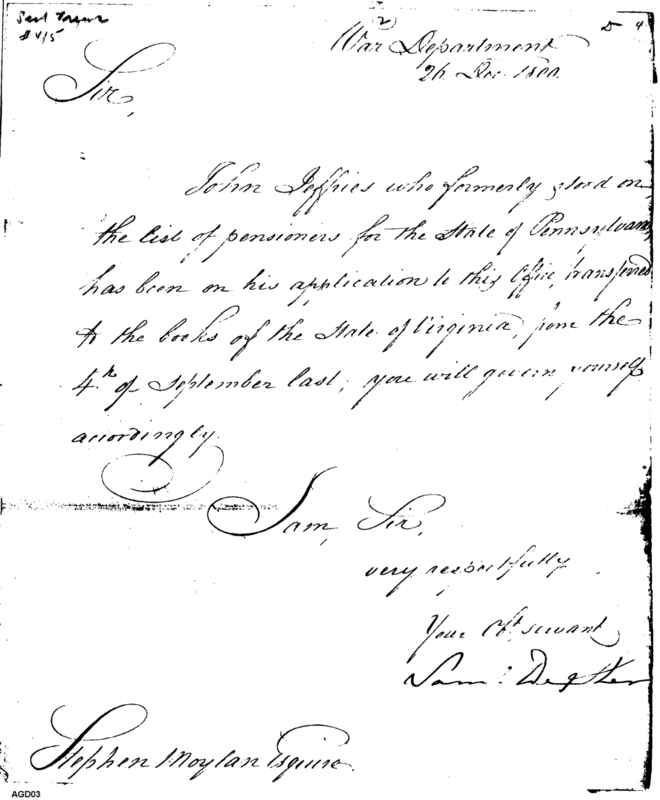 (2)
War Department
26 Dec. 1800.
Sir,
John Jeffries who formerly stood on
the list of pensioners for the State of Pennsylvania,
has been on his application to this Office, transferred
to the books of the State of Virginia, from the
4th of September last; you will govern yourself
accordingly.
I am, Sir,
very respectfully
Your Obt servant
Sam: Dexter
Stephen Moylan Esquire.
AGD03